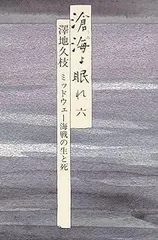 滄海よ眠れ 六
澤地久枝 ミッドウェー海戦の生と死